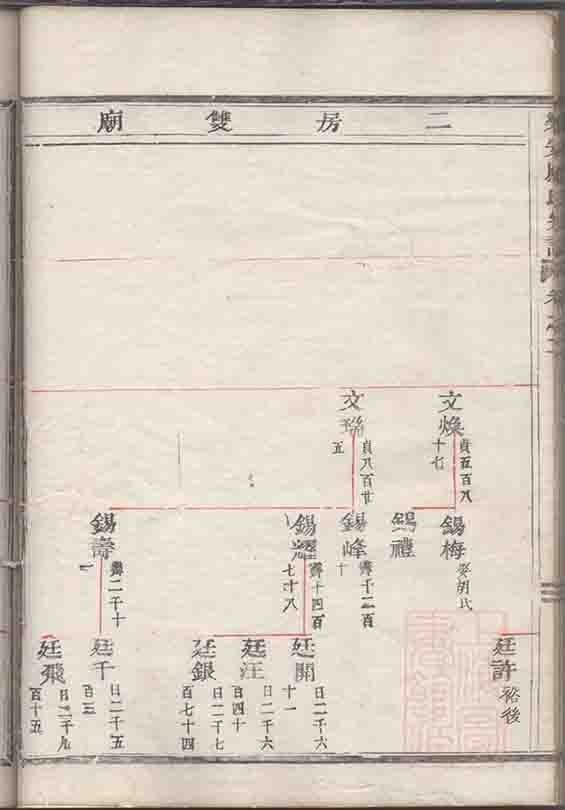 二房雙廟
文煥
貞五百八
十七
文聯
貞八百廿
五
錫梅
娶胡氏
錫禮
錫峰
齊千二百
十
錫耀
齊十四百
七十八
錫壽
齊二千十
廷許
裕後
廷開
日二千六
十一
廷汪
日二千六
百四十
廷銀
日二千七
百七十四
廷千
日二千五
百三
廷飛
百十五